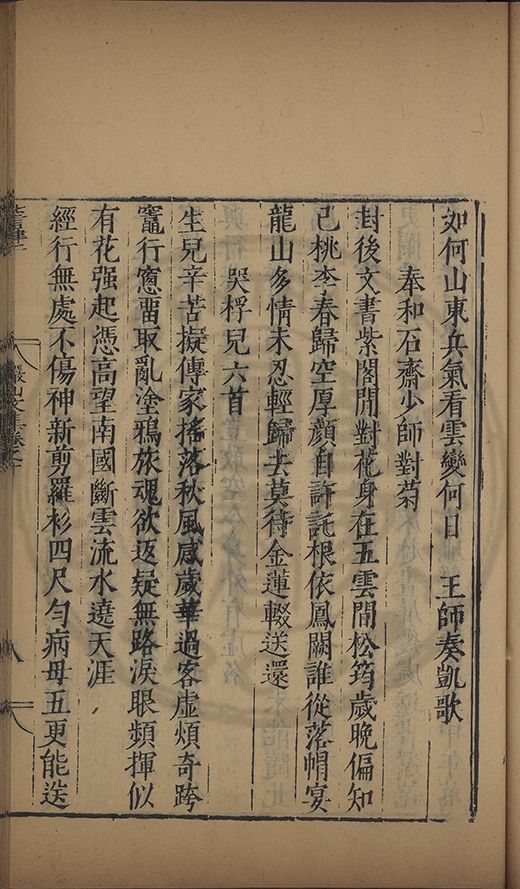 如何山東兵氣看雲變何日　王師奏凱歌
奉和石齋少師對菊
封後文書紫閣閒對花身在五雲間松筠歲晚偏知
已桃李春歸空厚顏自許託根依鳳闕誰從落帽宴
龍山多情未忍輕歸去莫待金蓮輟送還
哭桴兒六首
生兒辛苦擬傳家搖落秋風感歲華過客虛煩奇跨
竈行窻畱取亂塗鴉旅魂欲返疑無路淚眼頻揮似
有花强起憑高望南國斷雲流水遶天涯
經行無處不傷神新剪羅衫四尺勻病母五更能送